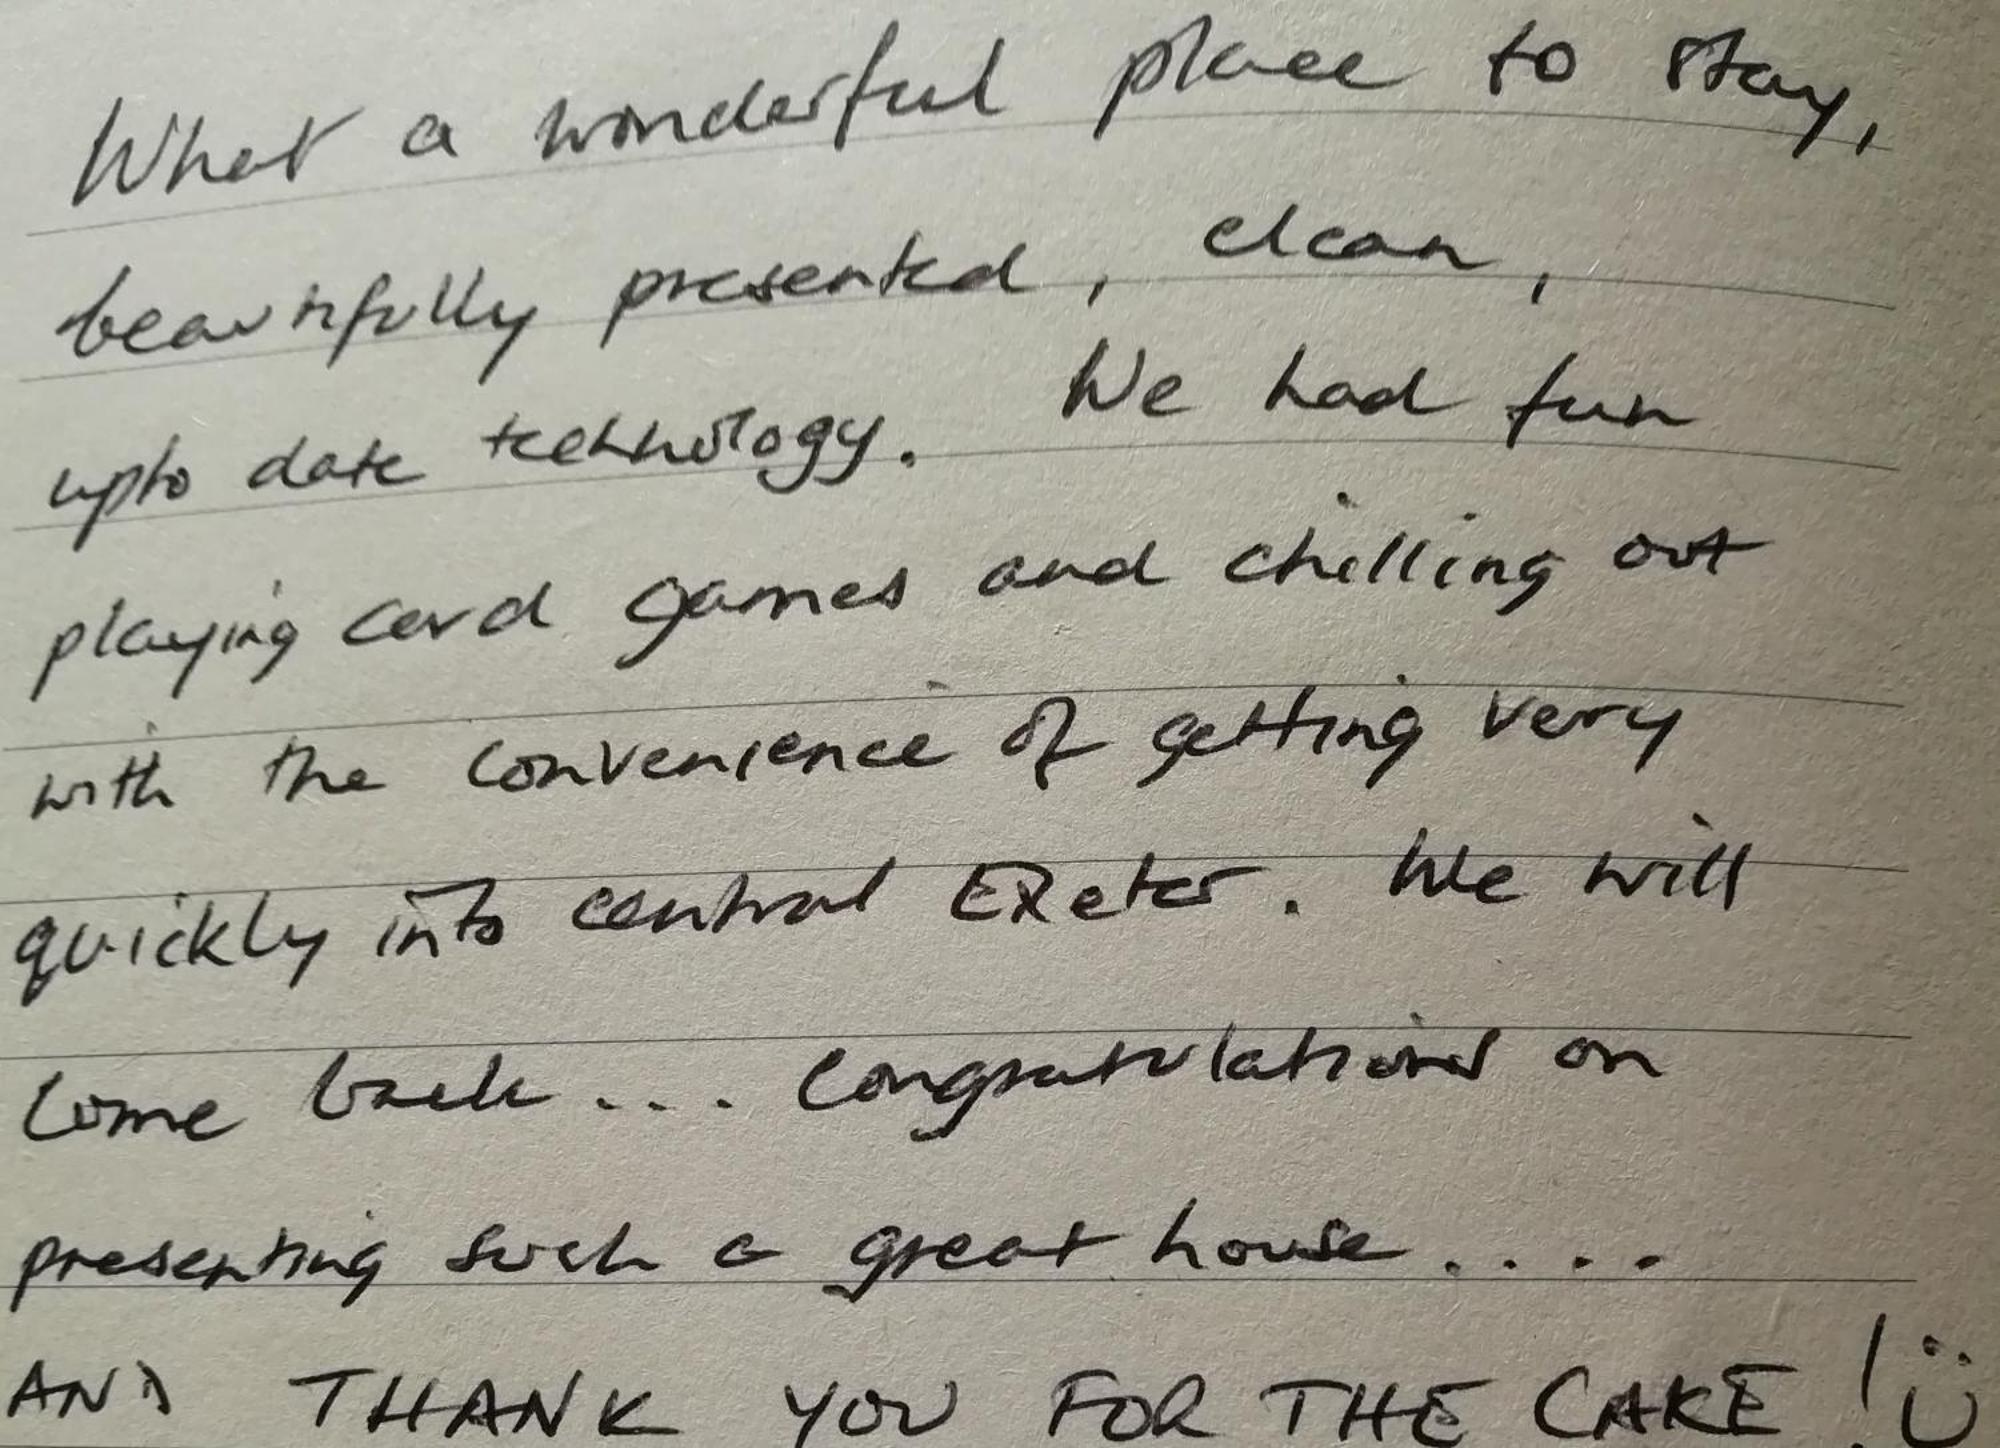 What a wonderful place to stay,
beautifully presented, clean,
upto date technology. We had fun
playing card games and chilling out
with the convenience of getting very
quickly into central Exeter. We will
come back... Congratulations on
presenting such a great house....
AND THANK YOU FOR THE CAKE! ü